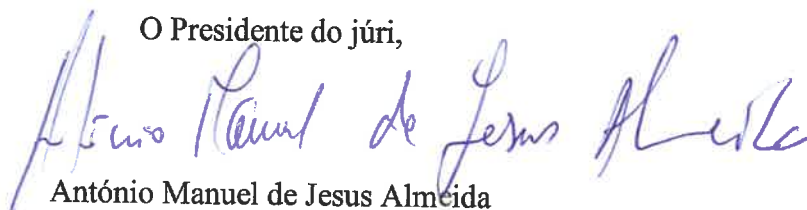 O Presidente do júri,
António Manuel de Jesus Almeida
António Manuel de Jesus Almeida